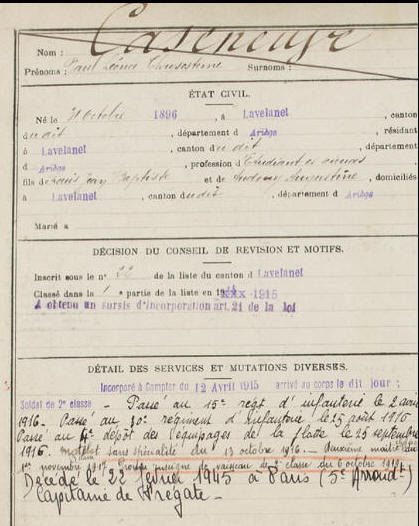 Caseneuve
Nom :
Prénoms : Paul Léonce Chrisostome Surnoms :
ÉTAT CIVIL.
Né le 31 Octobre 1896, à Lavelanet, canton
du dit, département d Ariège, résidant
à Lavelanet, canton du dit, département
d Ariège, profession d Etudiant es
fils de Louis Jean Baptiste et de Audouy Augustine, domiciliés
à Lavelanet, canton du dit, département d Ariège
Marié à
DÉCISION DU CONSEIL DE REVISION ET MOTIFS.
Inscrit sous le n° 22 de la liste du canton d Lavelanet
Classé dans la 1e partie de la liste en 1915
A obtenu un sursis d'incorporation art. 21 de la loi
DÉTAIL DES SERVICES ET MUTATIONS DIVERSES.
Incorporé à Compter du 12 Avril 1915 arrivé au corps le dit jour ;
Soldat de 2e classe - Passé au 15e régt d'infanterie le 2 avril
1916. - Passé au 80e régiment d'Infanterie le 25 août 1916
Passé au 4e dépôt des Equipages de la flotte le 25 septembre
1916. Matelot sans spécialité du 13 octobre 1916. - Deuxième maître du
1er novembre 1917. Promu enseigne de vaisseau de 2e classe du 6 octobre 1918
Décédé le 22 février 1945 à Paris (5e Arrondt)
Capitaine de Frégate -